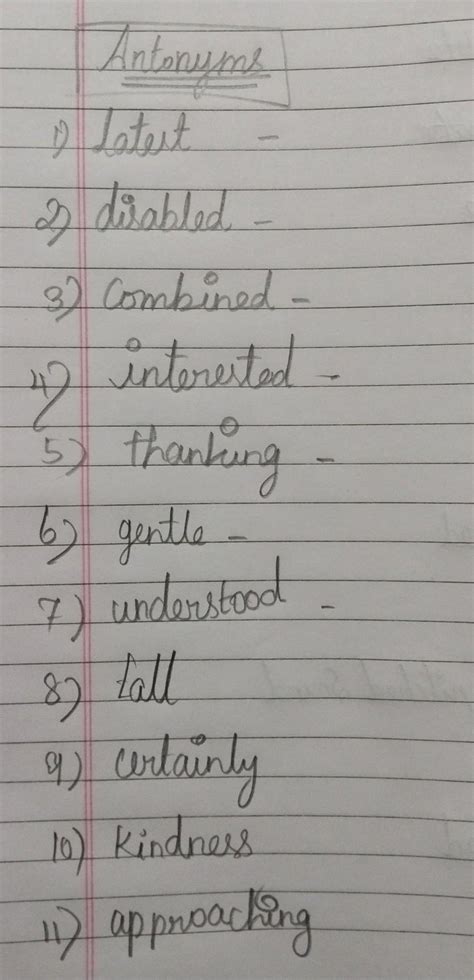 Antonyms
1) Latest -
2) disabled -
3) Combined -
4) interested -
5) thanking -
6) gentle -
7) understood -
8) tall
9) certainly
10) Kindness
11) approaching